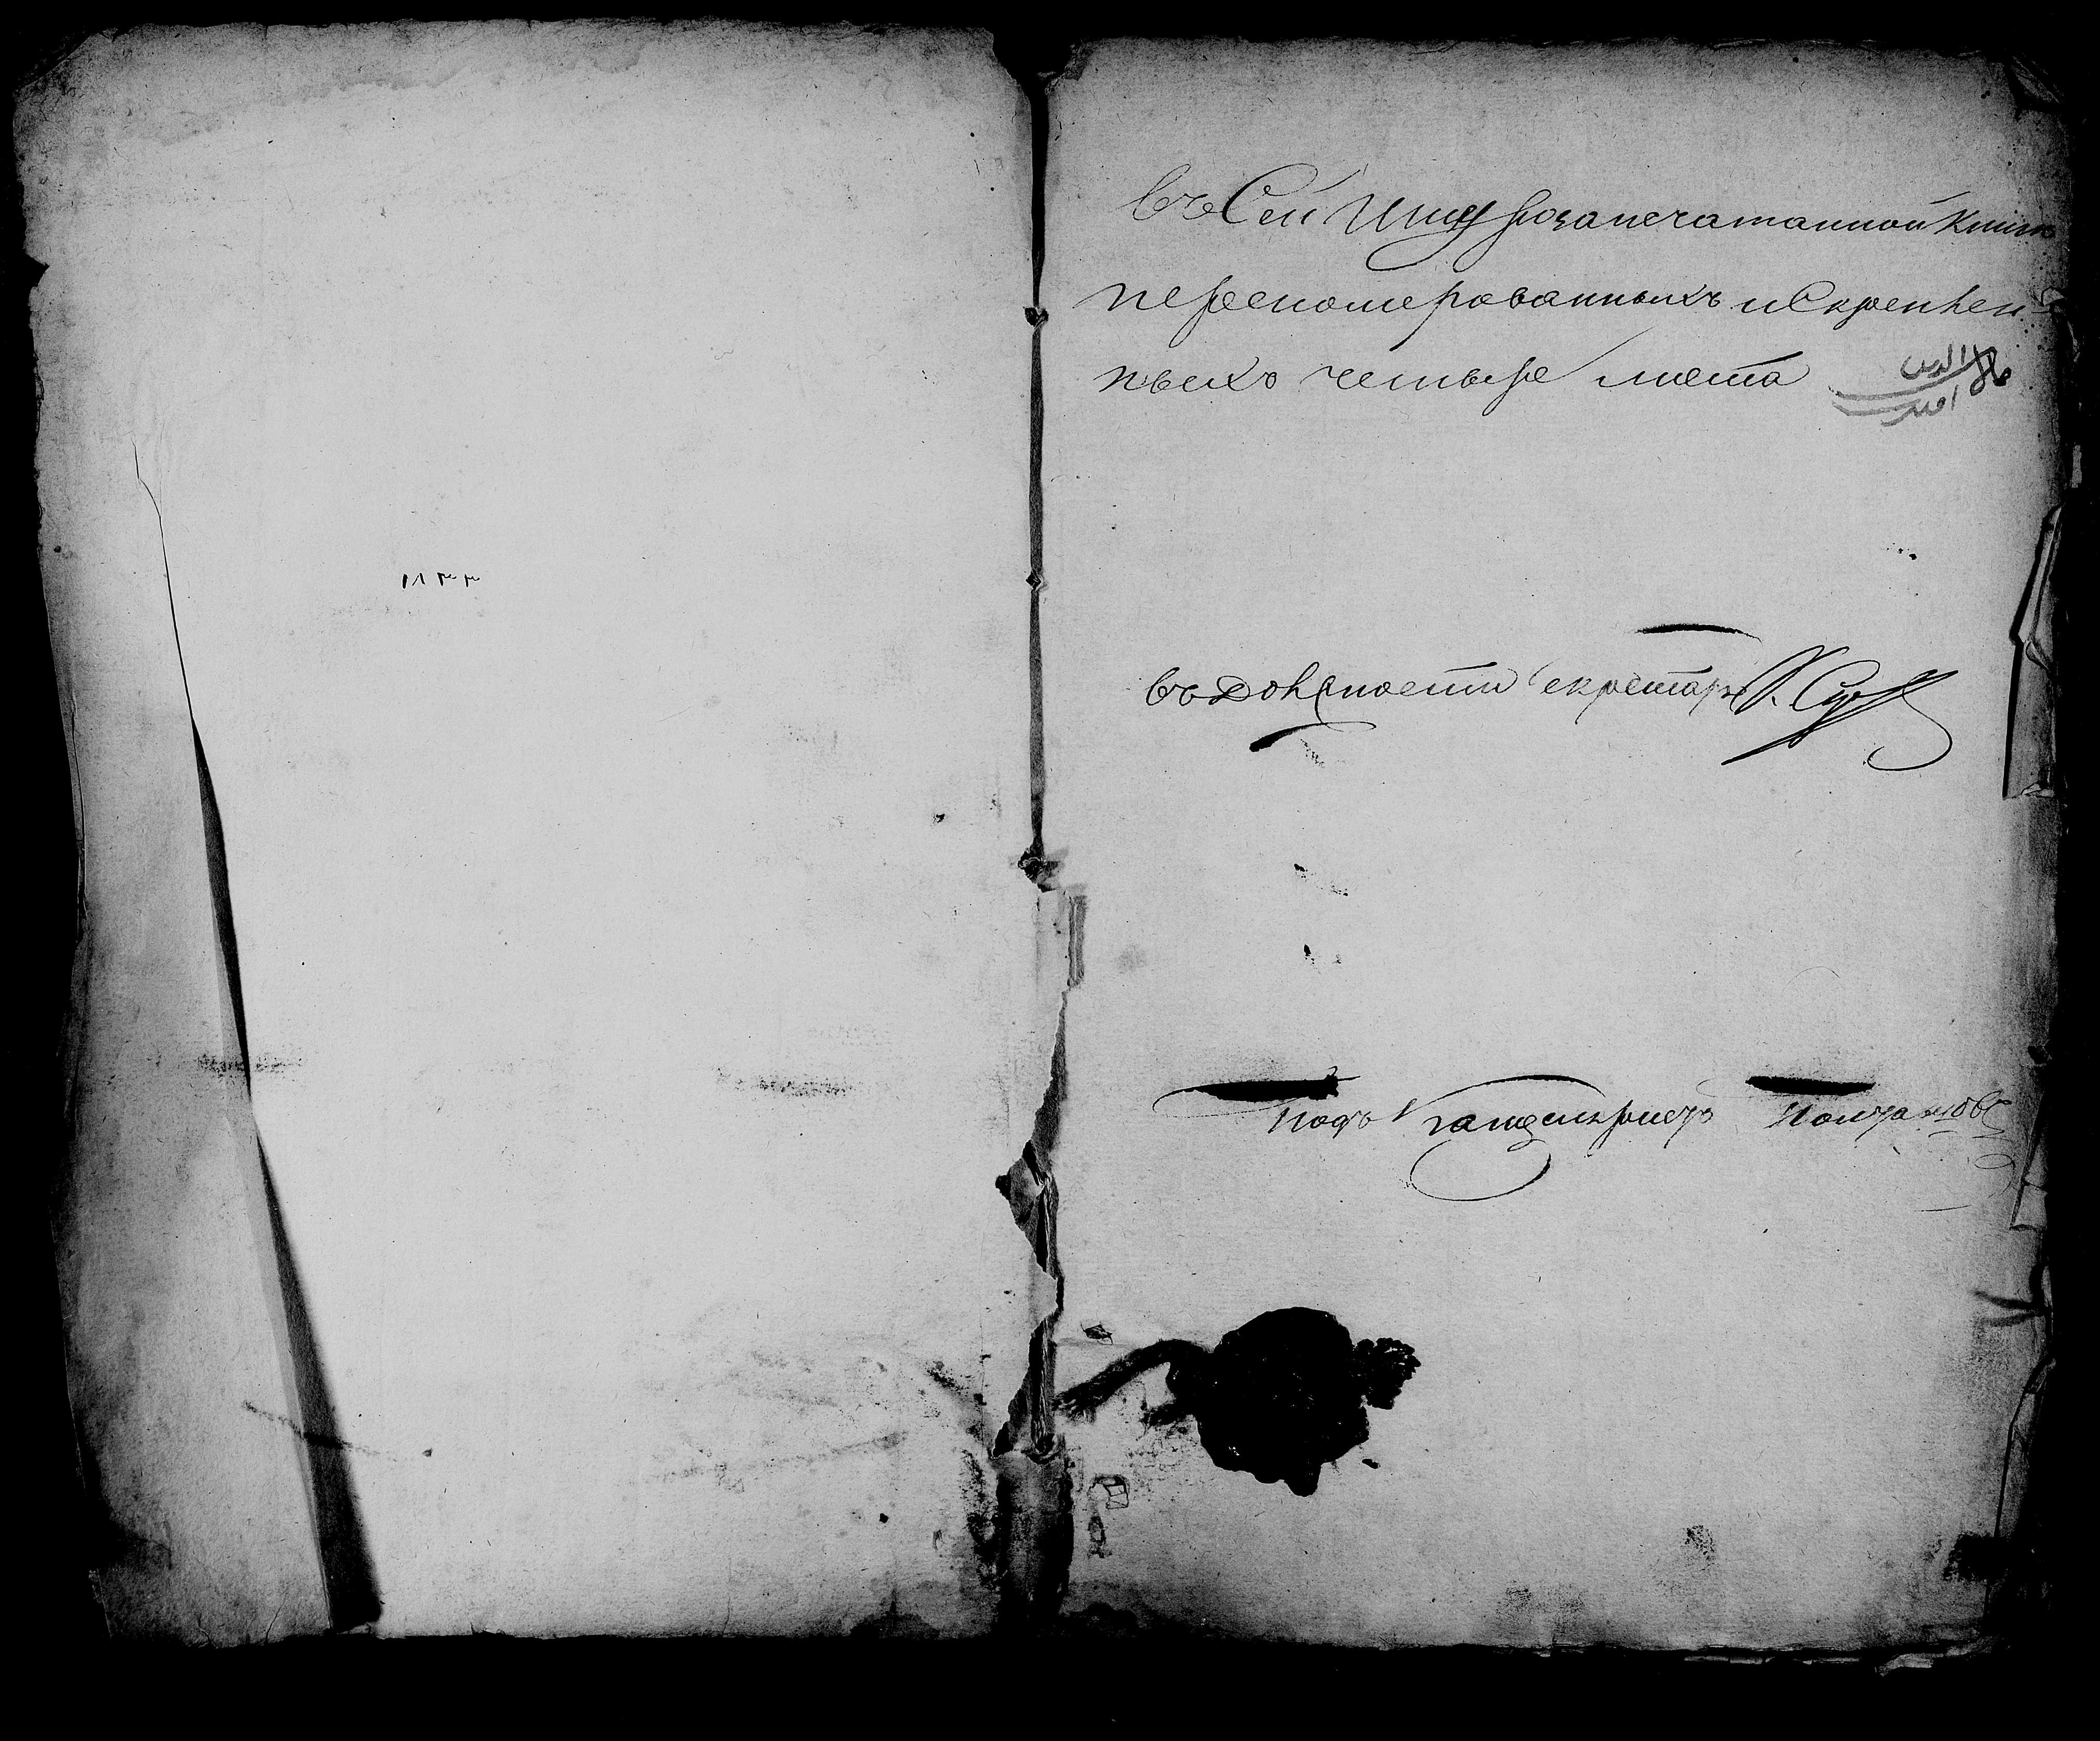 ۱۸۳۳
въ Сей Шнурозапечатанной Книге
переномерованныхъ и Скрепен-
ныхъ четыре листа
въ должности Секретаря
Подъ Канцеляристъ